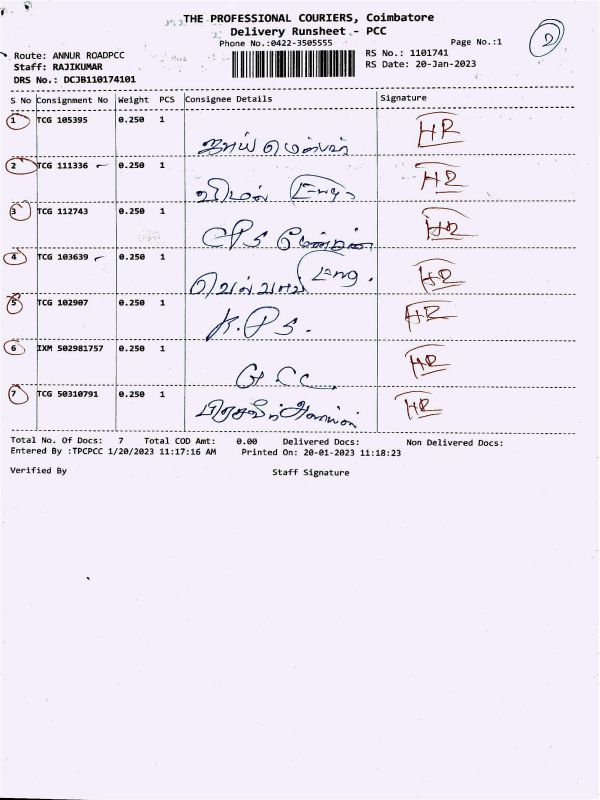 THE PROFESSIONAL COURIERS, Coimbatore
Delivery Runsheet - PCC
Phone No.:0422-3505555
Page No.:1
2
Route: ANNUR ROADPCC
RS No.: 1101741
Staff: RAJIKUMAR
RS Date: 20-Jan-2023
DRS No.: DCJB110174101
S No Consignment No Weight PCS Consignee Details Signature
1 TCG 105395 0.250 1 HR
2 TCG 111336 0.250 1 விமல் Engg HR
3 TCG 112743 0.250 1 HR
4 TCG 103639 0.250 1 Eng. HR
5 TCG 102907 0.250 1 K.P.S. HR
6 IXM 502981757 0.250 1 G.C.C. HR
7 TCG 50310791 0.250 1 HR
Total No. Of Docs: 7 Total COD Amt: 0.00 Delivered Docs: Non Delivered Docs:
Entered By :TPCPCC 1/20/2023 11:17:16 AM Printed On: 20-01-2023 11:18:23
Verified By Staff Signature